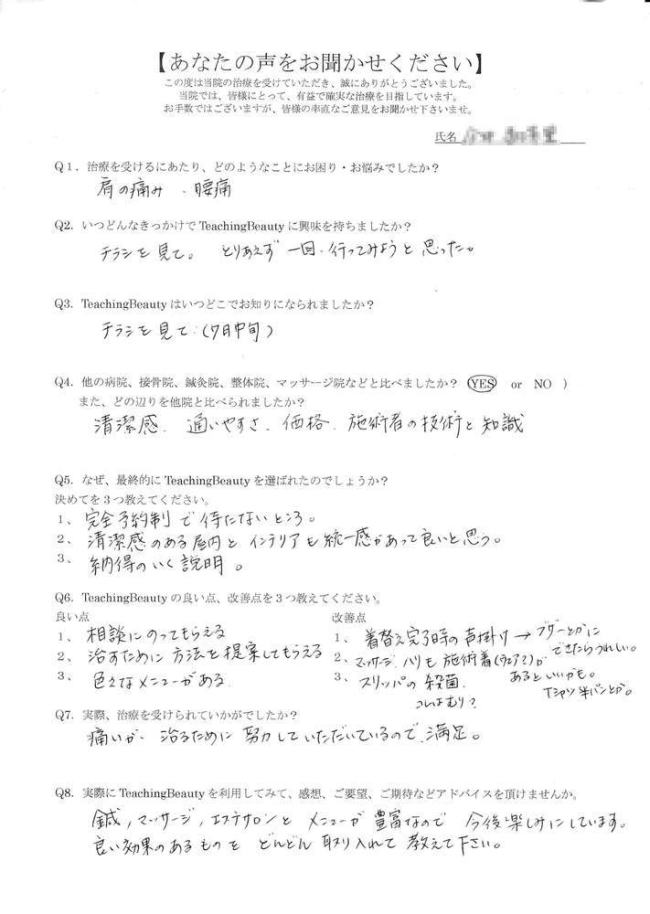 【あなたの声をお聞かせください】
この度は当院の治療を受けていただき、誠にありがとうございました。
当院では、皆様にとって、有益で確実な治療を目指しています。
お手数ではございますが、皆様の率直なご意見をお聞かせ下さいませ。
氏名
Q1. 治療を受けるにあたり、どのようなことにお困り・お悩みでしたか？
肩の痛み、腰痛
Q2. いつどんなきっかけで TeachingBeauty に興味を持ちましたか？
チラシを見て。 とりあえず 一回、行ってみようと思った。
Q3. TeachingBeauty はいつどこでお知りになられましたか？
チラシを見て（7月中旬）
Q4. 他の病院、接骨院、鍼灸院、整体院、マッサージ院などと比べましたか？ YES or NO ）
また、どの辺りを他院と比べられましたか？
清潔感、通いやすさ、価格、施術者の技術と知識
Q5. なぜ、最終的に TeachingBeauty を選ばれたのでしょうか？
決めてを３つ教えてください。
1、 完全予約制で待たないところ。
2、 清潔感のある屋内とインテリアも統一感があって良いと思う。
3、 納得のいく説明。
Q6. TeachingBeauty の良い点、改善点を３つ教えてください。
良い点 改善点
1、 相談にのってもらえる 1、 着替え完了時の声掛け→ブザーとかに
できたらうれしい。
2、 治すために方法を提案してもらえる 2、 マッサージ、ハリも施術着(ウェア?)が
あるといいかも。
Tシャツ 半パンとか。
3、 色々なメニューがある 3、 スリッパの殺菌
これはむり？
Q7. 実際、治療を受けられていかがでしたか？
痛いが、治るために努力していただいているので、満足。
Q8. 実際に TeachingBeauty を利用してみて、感想、ご要望、ご期待などアドバイスを頂けませんか。
鍼、マッサージ、エステサロンとメニューが豊富なので今後楽しみにしています。
良い効果のあるものをどんどん取り入れて教えて下さい。